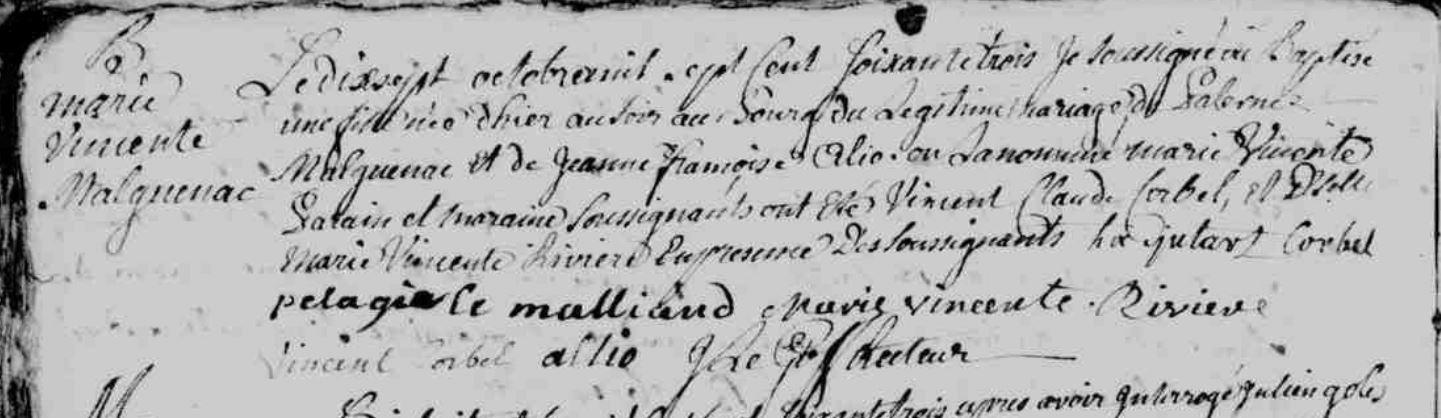 B
marie
Vincente
Malguenac
Le dix sept octobre mil sept cent soixante trois Je soussigné ai Baptisé
une fille née d'hier au soir au Bourg du Legitime mariage de
Malguenac et de Jeanne françoise alio on La nommée marie Vincente
Parain et maraine soussignants ont Eté Vincent Claude Corbel, et Dlle
Marie Vincente Riviere En presence Des soussignants Corbel
pelagie le malliaud Marie vincente Riviere
Vincent Corbel allio Recteur
trois apres avoir Interrogé Julien